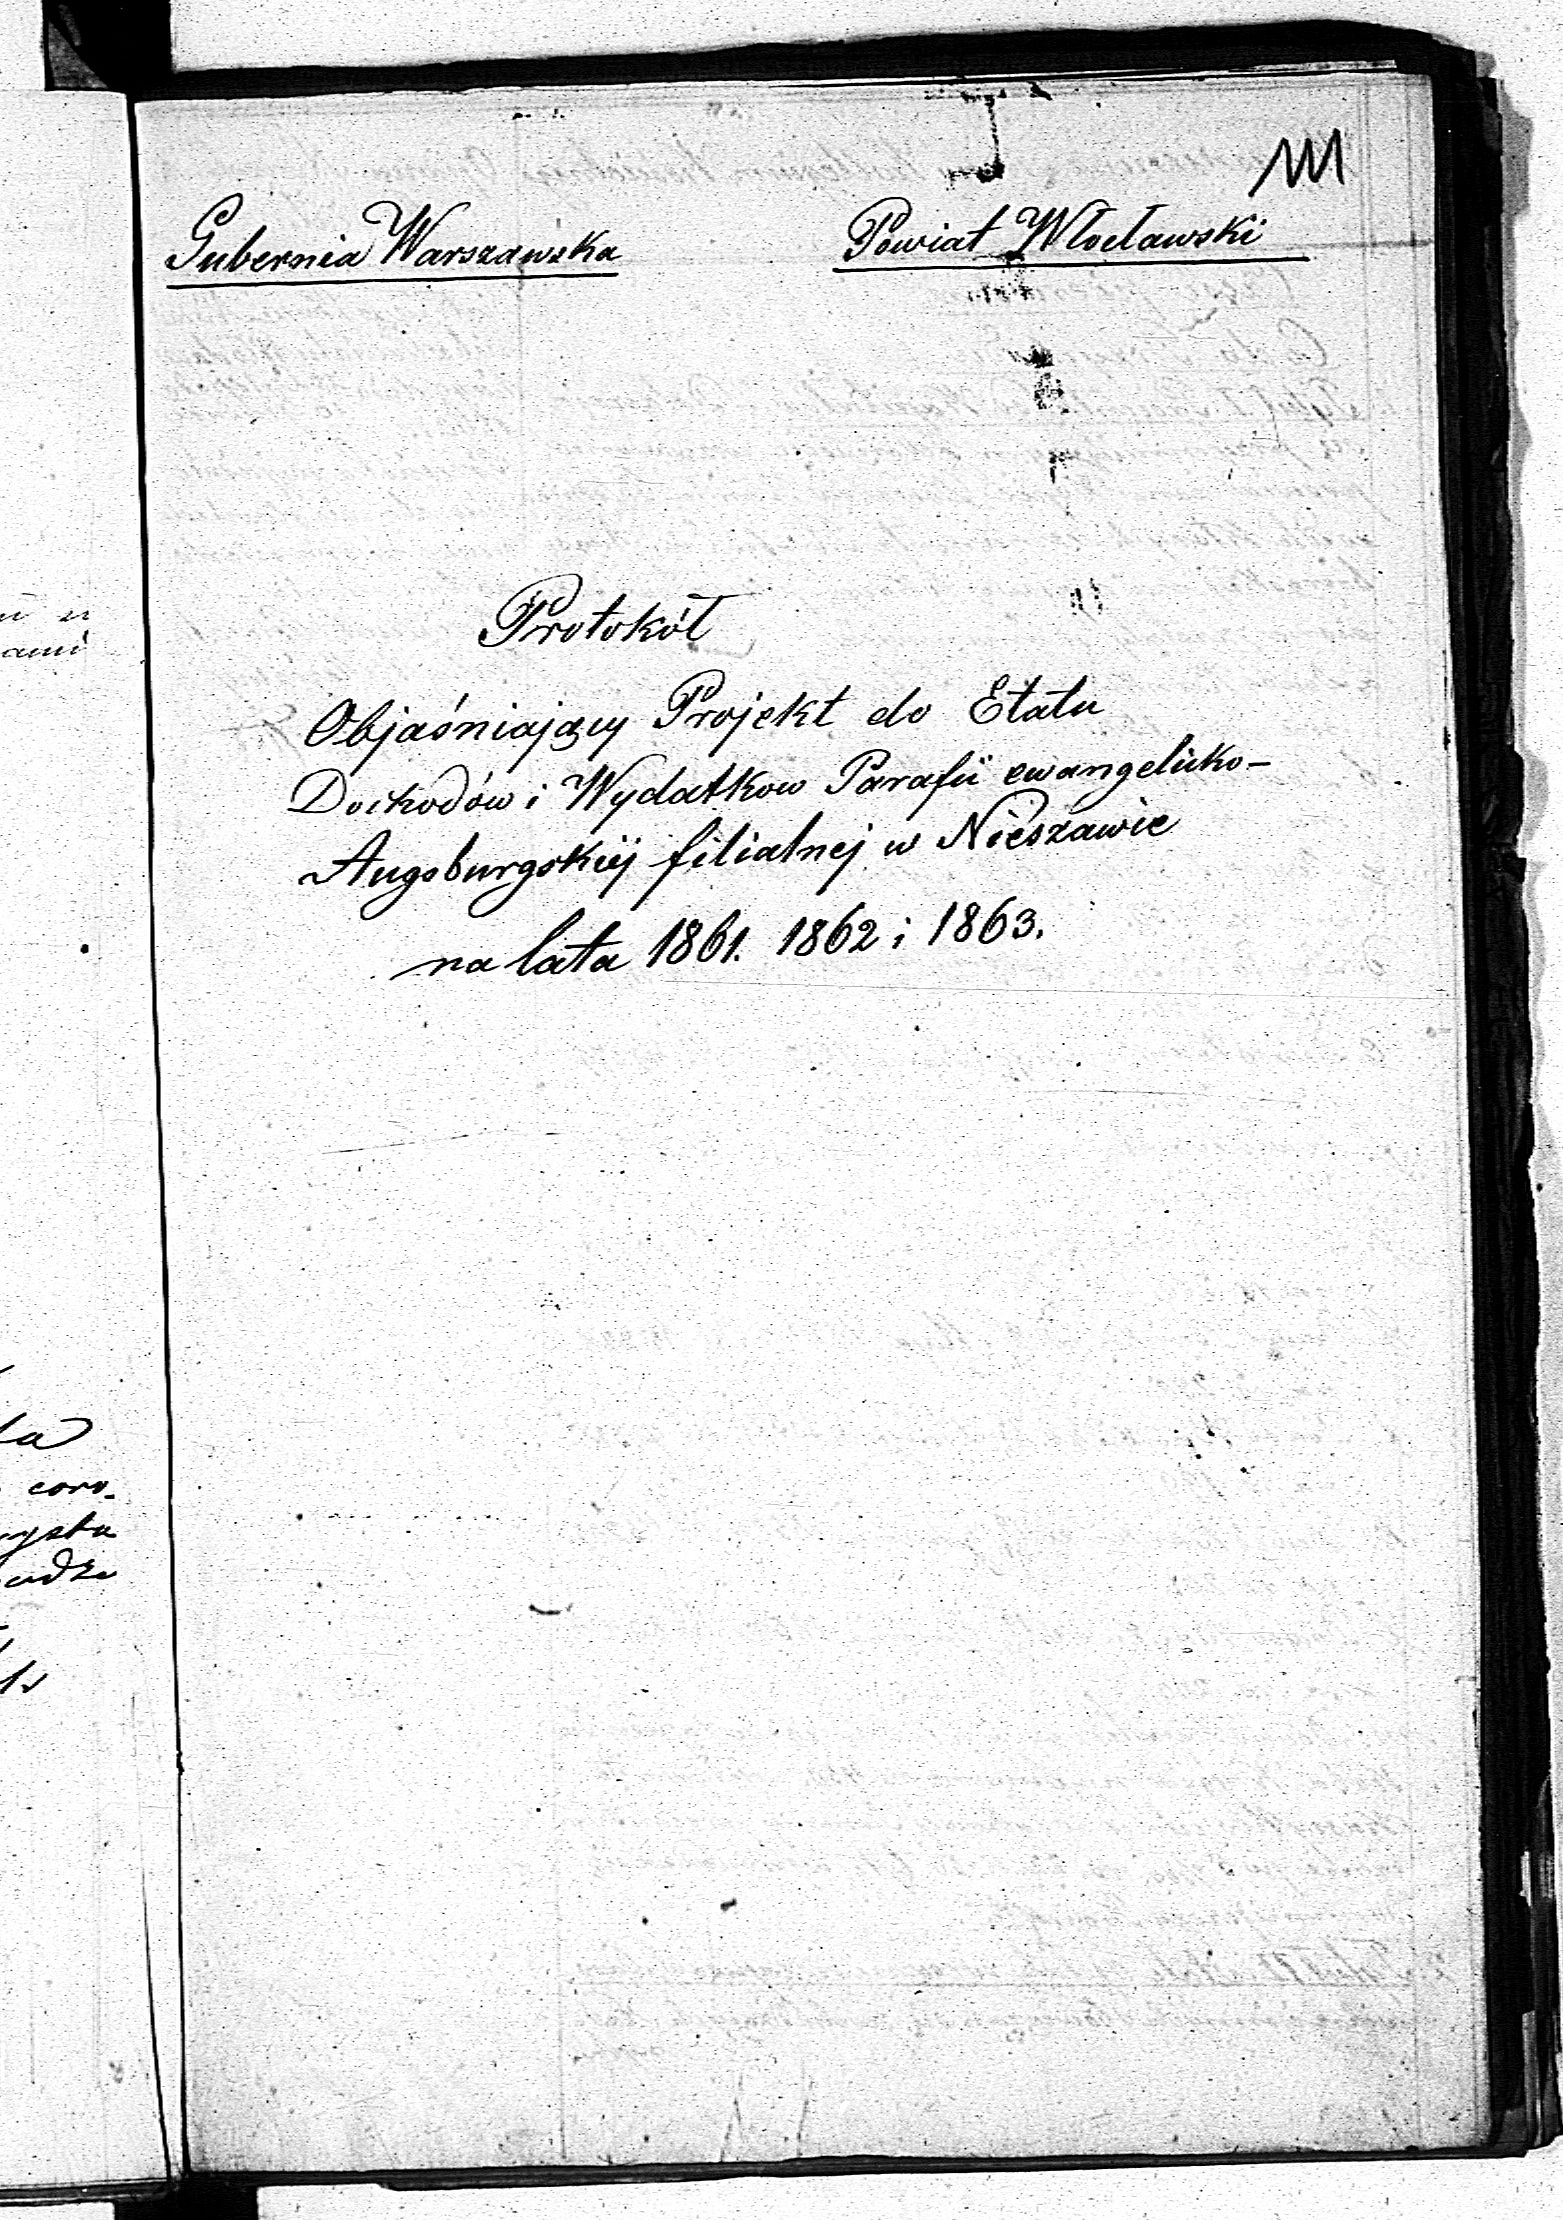 111
Gubernia Warszawska
Powiat Włocławski
Protokół
Objaśniający Projekt do Etatu
Dochodów i Wydatkow Parafii ewangelicko-
Augsburgskiéj filialnej w Nieszawie
na lata 1861. 1862 i 1863.